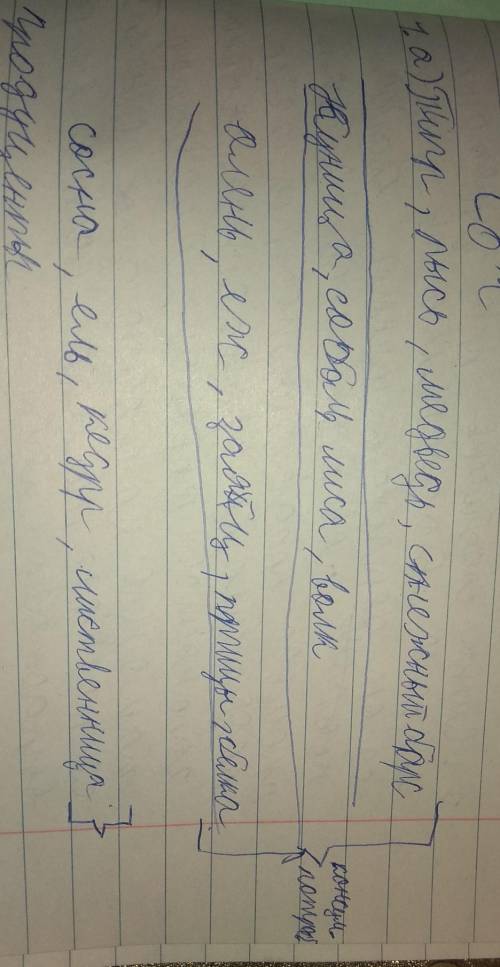 1. а) Тигр, рысь, медведь, снежный барс
Куница, соболь, лиса, волк
олень, еж, заяц, птицы, белка
консументы
сосна, ель, кедр, лиственница
Продуценты